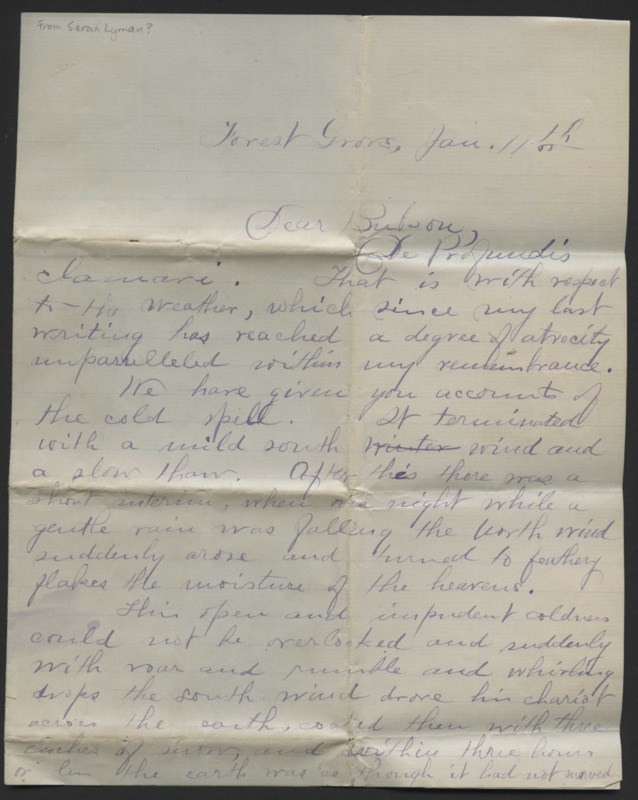 From Sarah Lyman?
Forest Grove, Jan. 11th
Dear Bubson,
De Profundis
Clamavi. That is with respect
to the weather, which since my last
writing has reached a degree of atrocity
unparrelleled within my remembrance.
We have given you accounts of
the cold spell. It terminated
with a mild south winter wind and
a slow thaw. After this there was a
short interim, when one night while a
gentle rain was falling the North wind
suddenly arose and turned to feathery
flakes the moisture of the heavens.
This open and impudent coldness
could not be overlooked and suddenly
with roar and rumble and whirling
drops the south wind drove his chariot
across the earth, coated then with three
inches of snow, and within three hours
or less the earth was as though it had not snowed